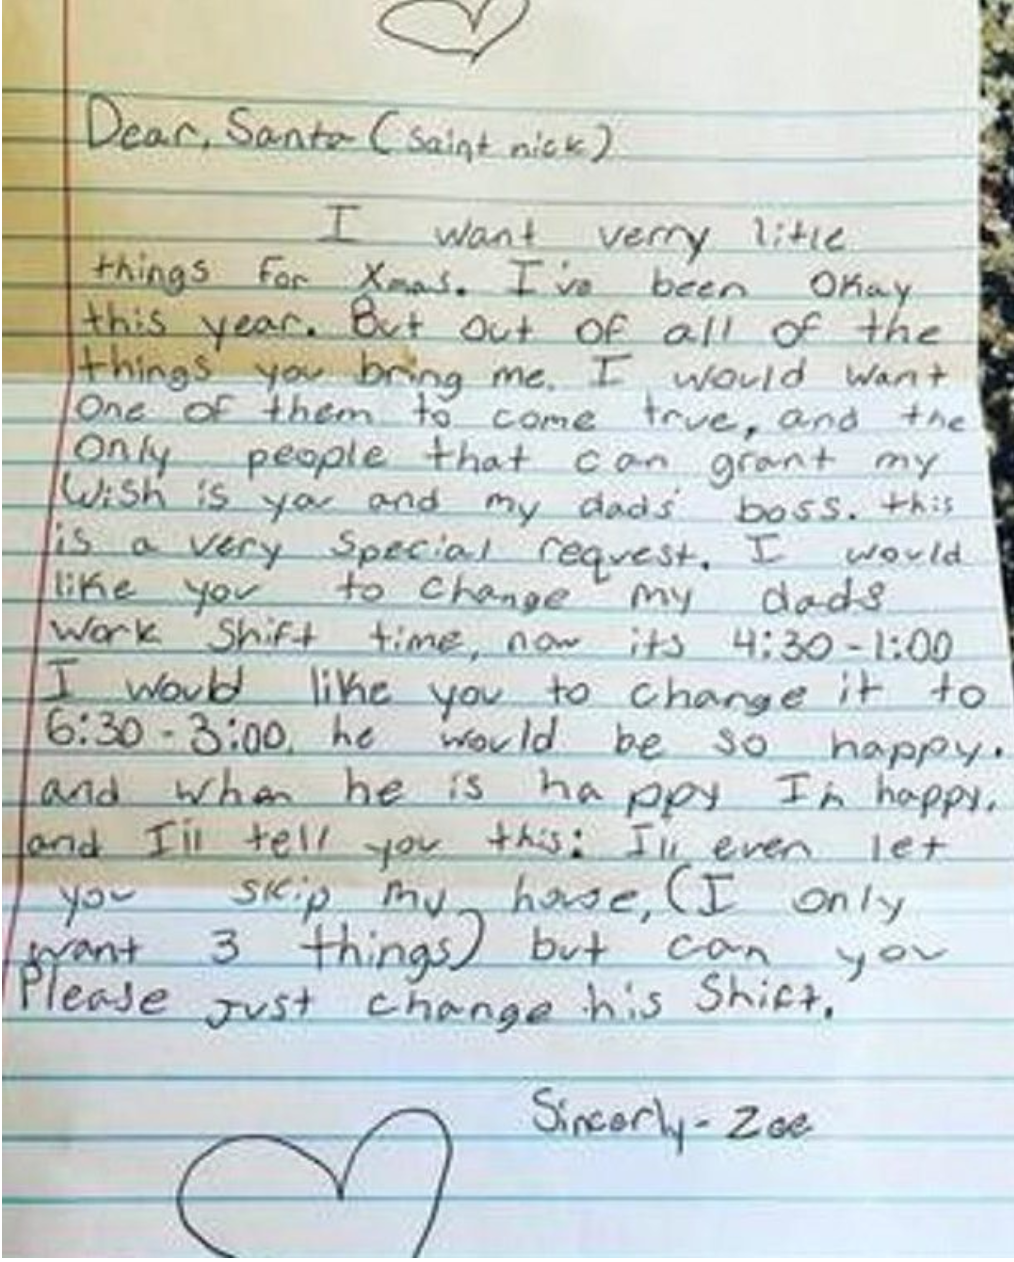 Dear, Santa (Saint nick)
I want verry litle
things for Xmas. I've been okay
this year. But out of all of the
things you bring me. I would want
one of them to come true, and the
only people that can grant my
wish is you and my dads' boss. this
is a very special request. I would
like you to change my dads
work shift time, now its 4:30-1:00
I would like you to change it to
6:30-3:00. he would be so happy.
and when he is happy Im happy.
and I'll tell you this: I'll even let
you skip my house, (I only
want 3 things) but can you
Please just change his Shift.
Sincerly-Zoe